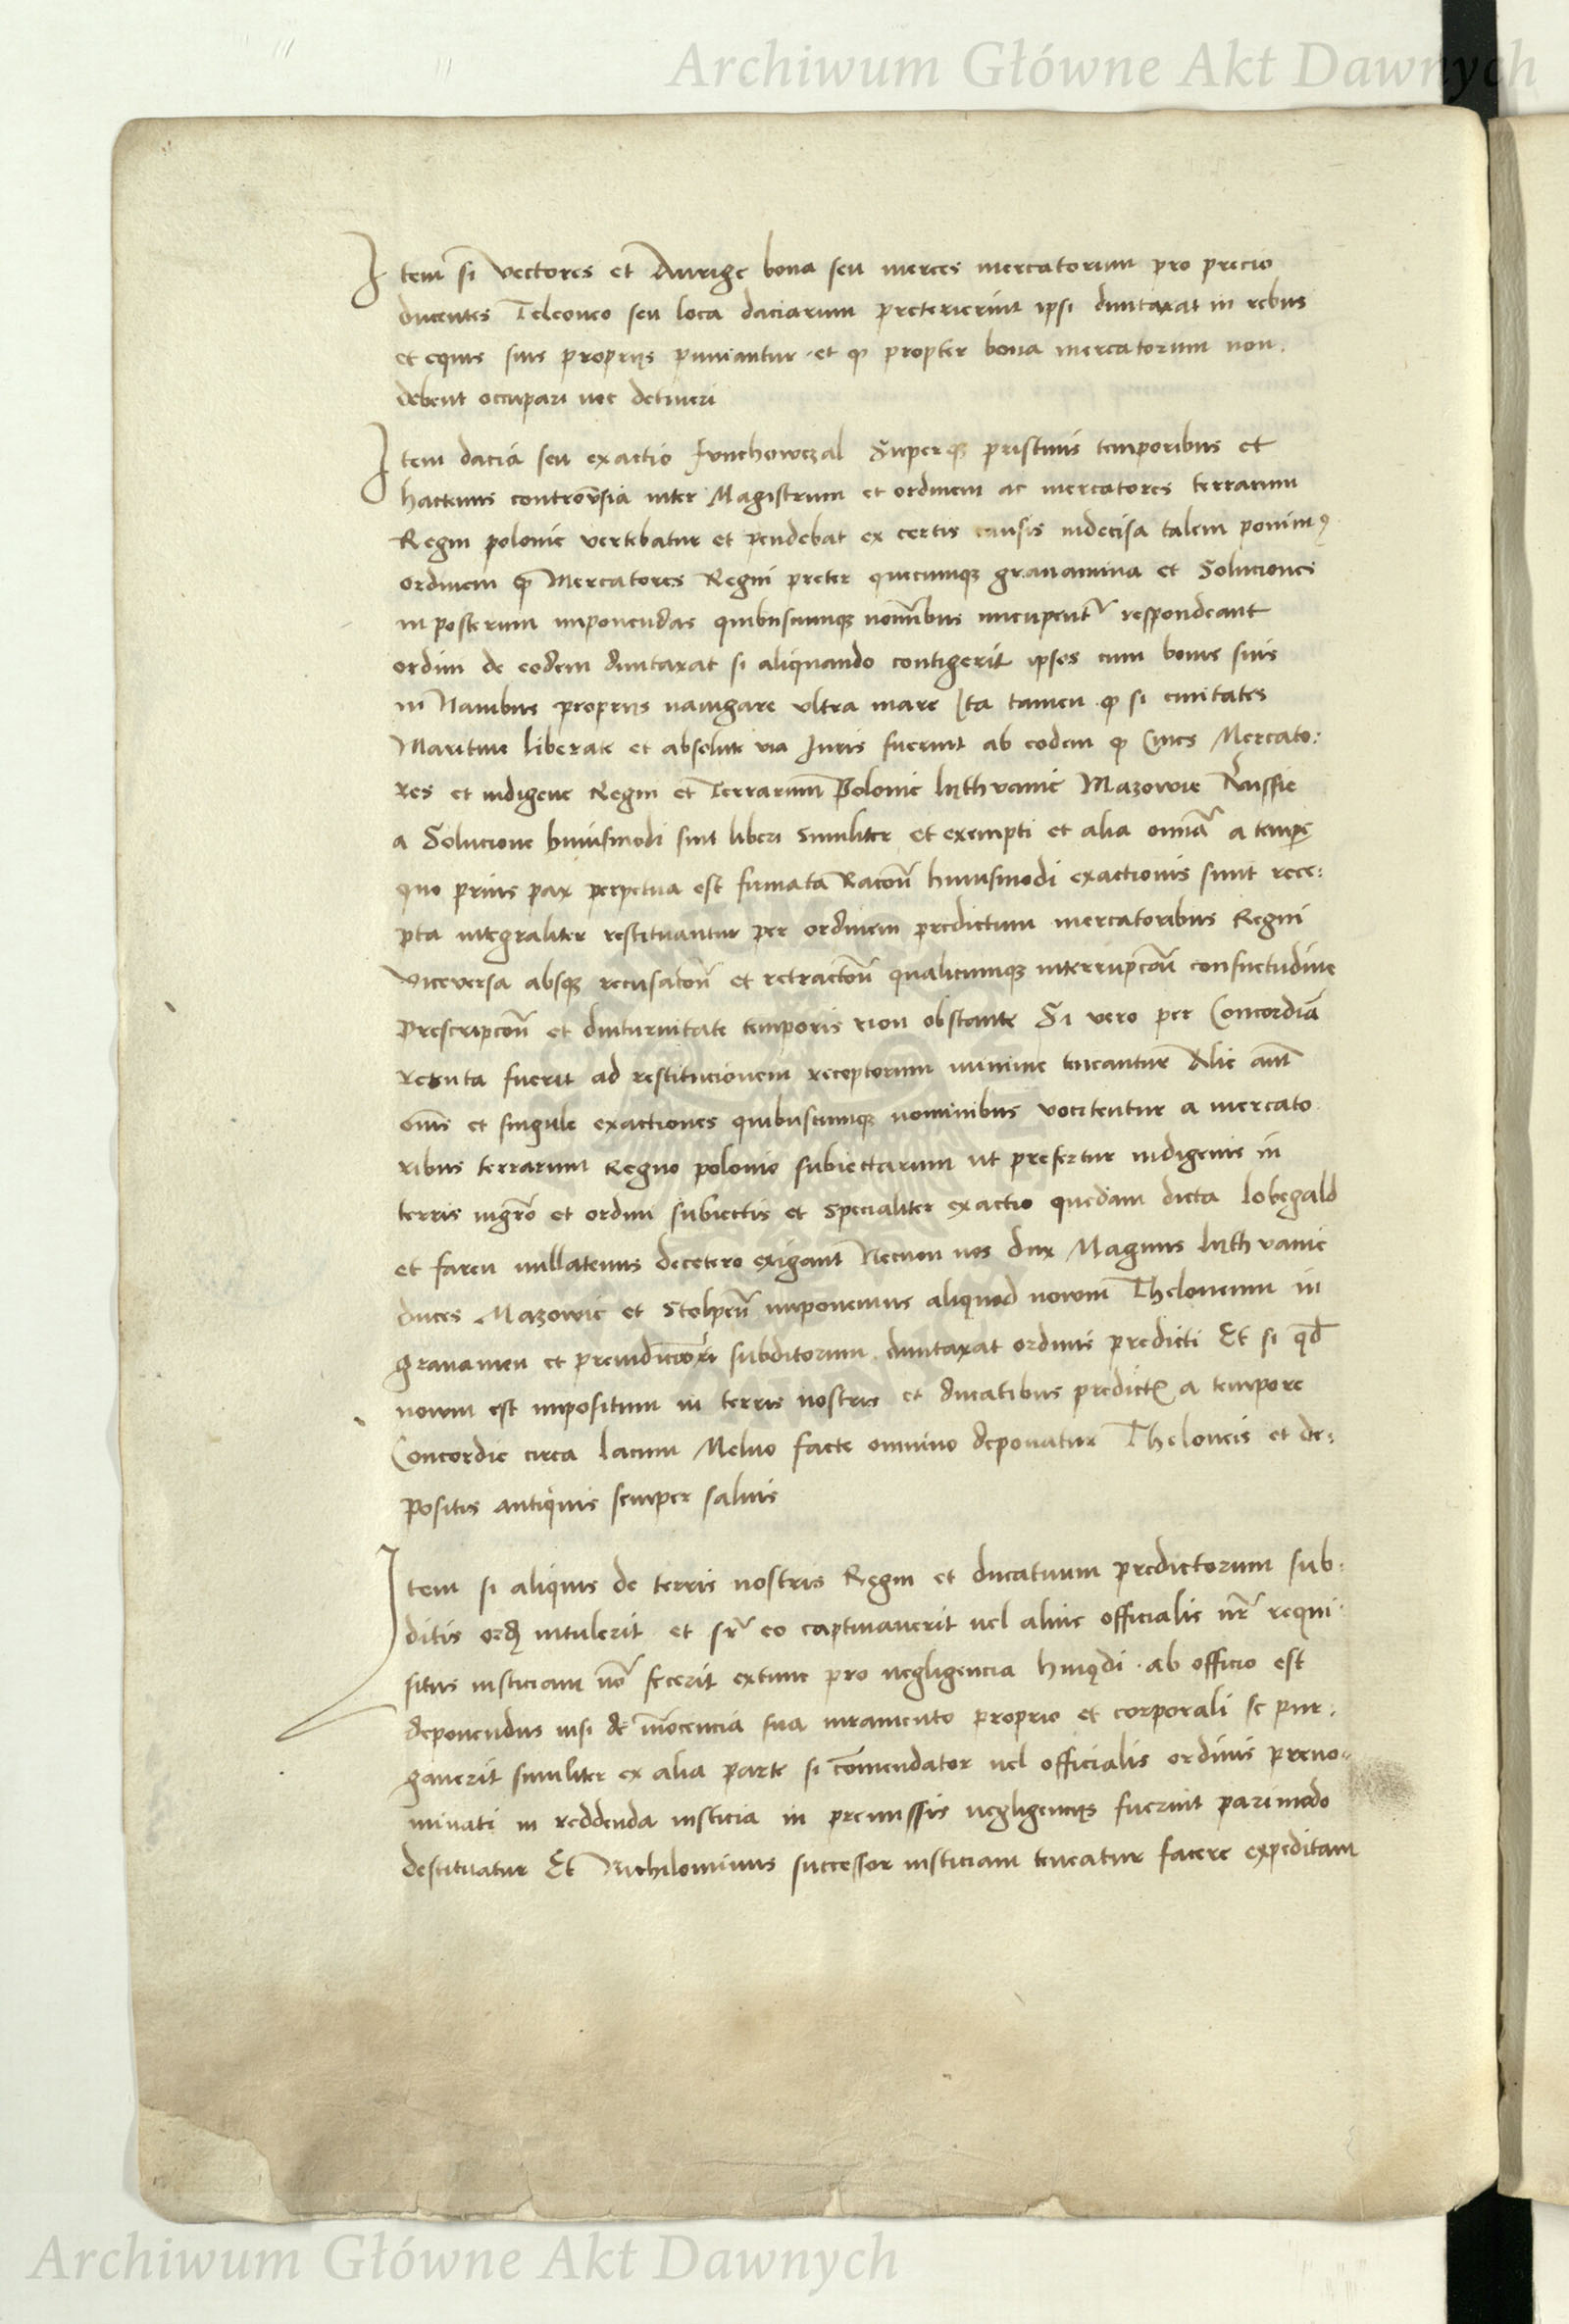 Archiwum Główne Akt Dawnych
Item si vectores et Aurige bona seu merces mercatorum pro precio
ducentes Teleoneo seu loca daciarum preterierint ipsi duntaxat in rebus
et equis suis proprijs puniantur et qͦ propter bona mercatorum non
debent occupari nec detineri
Item dacia seu exactio Superqꝫ pristinis temporibus et
hactenus controu̅sia inter Magistrum et ordinem ac mercatores terrarum
Regni polonie vertebatur et pendebat ex certis causis indecisa talem ponimꝰ
ordinem ꝙ Mercatores Regni preter quecumqꝫ grauamina et Soluciones
in posterum imponendas quibuscumqꝫ no̅i̅bus nu̅cupentᷣ respondeant
ordini de eodem duntaxat si aliquando contigerit ipsos cum bonis suis
in Nauibus proprijs nauigare vltra mare Ita tamen qͦ si ciuitates
Maritime liberate et absolute via Juris fuerint ab eodem qͦ Ciues Mercato:
res et indigene Regni et Terrarum Polonie luthvanie Mazowie Russie
a Solucione huiusmodi sint liberi similiter et exempti et alia omnia a tempe
quo prius pax perpetua est firmata Racoe̅ huiusmodi exactionis sunt rece:
pta integraliter restituantur per ordinem predictum mercatoribus Regni
viceversa absqꝫ recusacoe̅ et retractoe̅ qualicumqꝫ interrupcoe̅ consuetudine
Prescripcoe̅ et diuturnitate temporis non obstante Si vero per Concordia̅
fuerit ad restitucionem receptorum minime teneantur Alie aut̅
om̅s et singule exactiones quibuscumqꝫ nominibus vocitentur a mercato
ribus terrarum Regno polonie subiectarum ut prefertur indigenis in
terris mgr̅o et ordini subiectis et specialiter exactio quedam dicta lobegald
et faren nullatenus decetero exigant Necnon nos dux Magnus luthvanie
duces Mazowie et Stolpen̅ imponemus aliquod nowm Theloneum in
grauamen et subditorum duntaxat ordinis predicti Et si qd̅
nowm est impositum in terris nostris et ducatibus predictꝭ a tempore
Concordie circa lacum Melno facte omnino deponatur Theloneis et de:
positis antiquis semper saluis
Item si aliquis de terris nostris Regni et ducatuum predictorum sub:
ditis intulerit et eo captiuauerit vel alius officialis nr̅ requi:
situs iusticiam no̅ fecerit extunc pro negligencia ab officio est
deponendus nisi de in̅ocencia sua iuramento proprio et corporali se pur:
gauerit similiter ex alia parte si com̅endator vel officialis ordinis preno:
minati in reddenda iusticia in premissis fuerint pari modo
destituatur Et Nichilominus successor iusticiam teneatur facere expeditam
Archiwum Główne Akt Dawnych